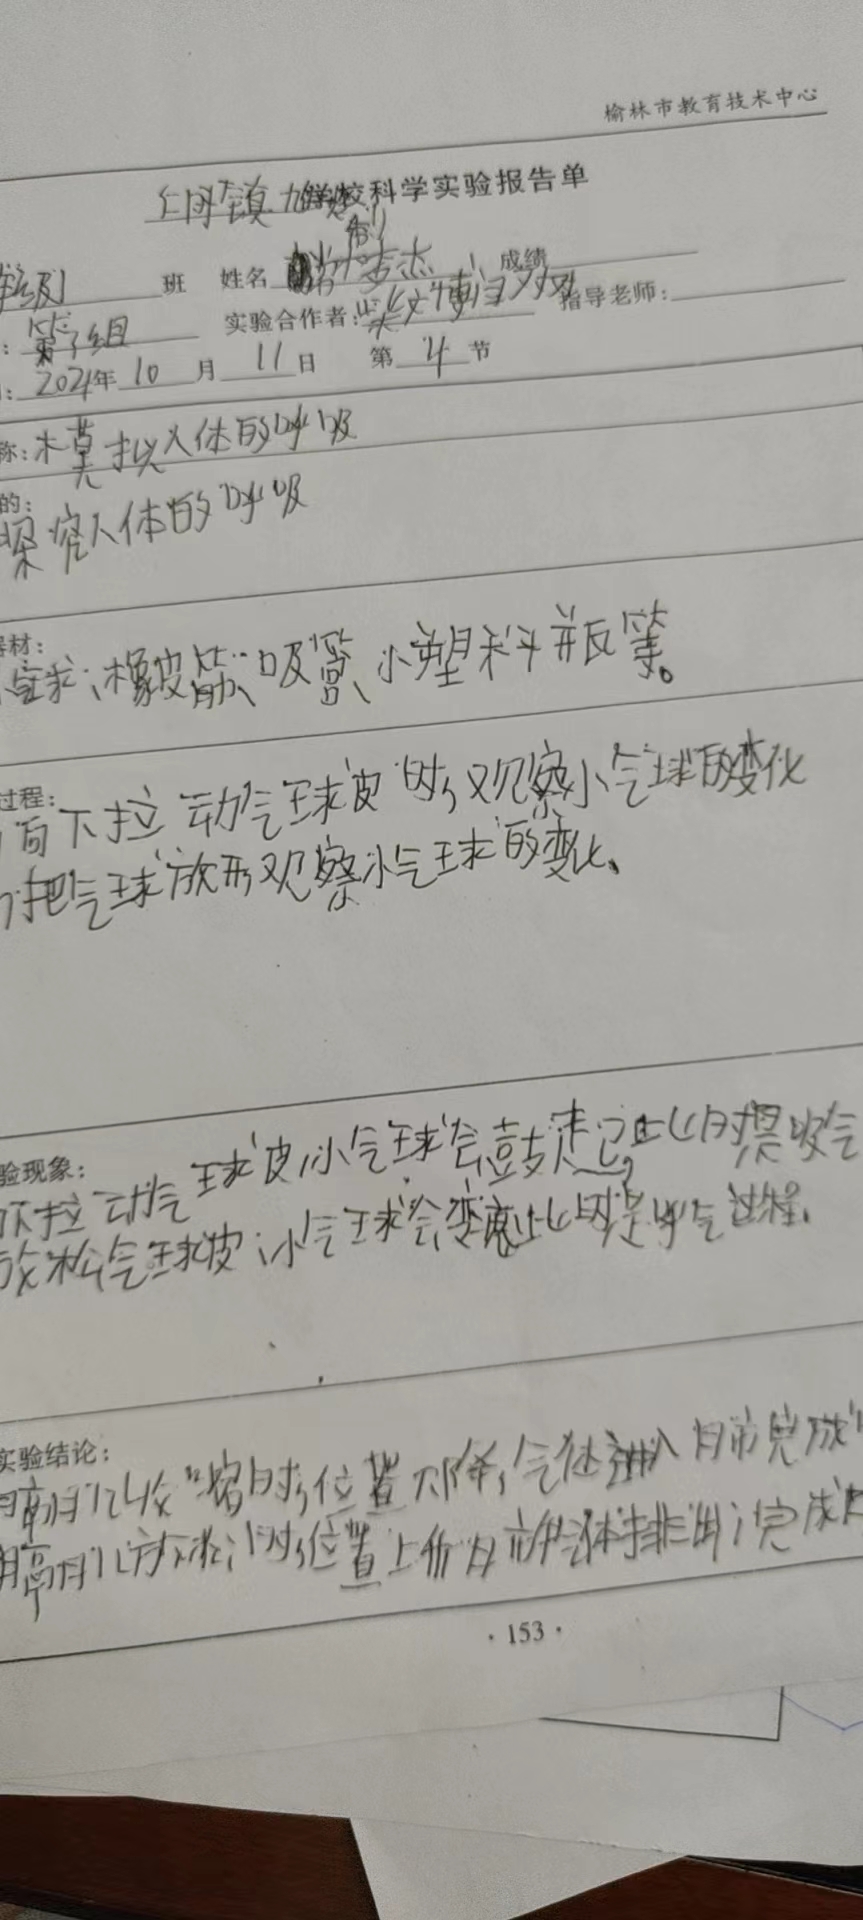 榆林市教育技术中心
镇九年制学校科学实验报告单
年级 班 姓名 志杰 成绩
第 组 实验合作者: 文博 指导老师:
2021年 10 月 11 日 第 4 节
称: 模拟人体的呼吸
的:
探究人体的呼吸
器材:
气球、橡皮筋、吸管、小塑料瓶等。
过程:
向下拉动气球皮时,观察小气球的变化
把气球放形观察小气球的变化、
验现象:
下拉动气球皮,小气球会鼓起 此时是吸气
放松气球皮,小气球会变瘪此时是呼气过程。
实验结论:
膈肌收缩时,位置下降,气体进入肺完成
膈肌放松,时,位置上升 气体排出,完成
· 153 ·